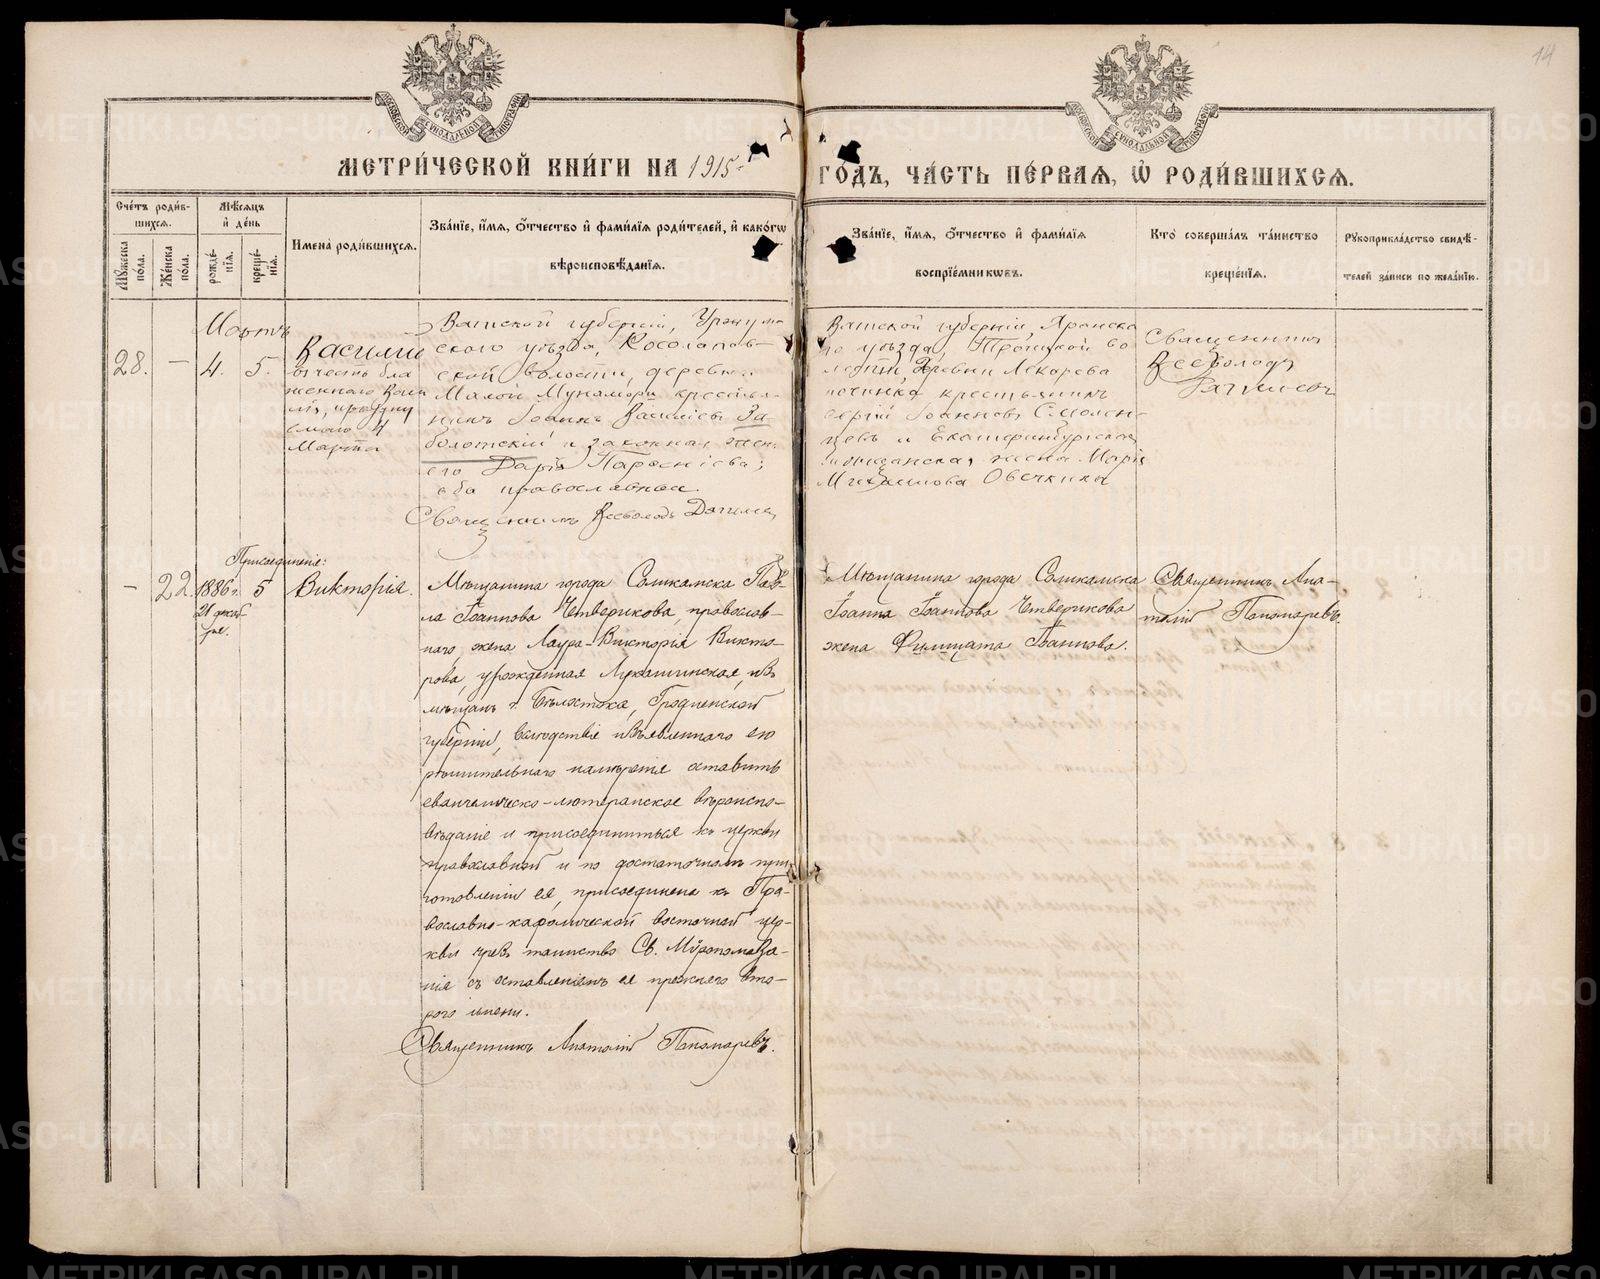 14
МОСКОВСКОЙ СѴНОДАЛЬНОЙ ТИПОГРАФІИ
МОСКОВСКОЙ СѴНОДАЛЬНОЙ ТИПОГРАФІИ
МЕТРИ́ЧЕСКОЙ КНИ́ГИ НА 1915
ГО́ДЪ, ЧА́СТЬ ПЕ́РВАЯ, Ѡ РОДИ́ВШИХСЯ.
Сче́тъ роди́в-
шихся.
Мꙋ́жеска по́ла.
Же́нска по́ла.
Мѣ́сяцъ
и҆ де́нь
рожде́-
нїя.
креще́-
нїя.
И҆мена̀ роди́вшихся.
Зва́нїе, и҆́мя, ѻ҆́тчество и҆ фами́лїя роди́телей, и҆ како́гѡ
вѣроисповѣ́данїя.
Зва́нїе, и҆́мя, ѻ҆́тчество и҆ фами́лїя
воспрїе́мниковъ.
Кто̀ соверша́лъ та́инство
креще́нїя.
Рꙋкоприкла́дство свидѣ́-
телей за́писи по жела́нїю.
Мартъ
28. — 4. 5.
Василій
въ честь бла
женнаго Васи
лія, праздну
емаго 4
Марта
Вятской губерніи, Уржум
скаго уѣзда, Косолапов-
ской волости, деревни
Малой Мунамори крестья-
нинъ Іоаннъ Василіевъ За
болотскій и законная жен
его Дарія
оба православные
Священникъ Всеволодъ
Вятской губерніи, Яранска
го уѣзда, Троицкой во
лости деревни Лекарева
починка крестьянинъ
Сергій Іоанновъ Смолен-
цевъ и Екатеринбургская
мѣщанская жена Марія
Михаилова Овечкина
Священникъ
Всеволодъ
Присоединеніе:
— 22. 1886 г. 5
21 декаб
ря.
Викторія.
Мѣщанина города Соликамска Пав-
ла Іоаннова Четверикова, православ-
наго, жена Лаура-Викторія Викто-
рова, урожденная Лукашинская, изъ
мѣщанъ г. Бѣлостока, Гродненской
губерніи, вслѣдствіе изъявленнаго ею
рѣшительнаго намѣренія оставить
евангелическо-лютеранское вѣроиспо-
вѣданіе и присоединиться къ церкви
православной и по достаточномъ при-
готовленіи ея, присоединена къ Пра-
вославно-каѳолической восточной цер-
кви чрезъ таинство Св. Мѵропомаза-
нія съ оставленіемъ ея прежняго вто-
рого имени.
Священникъ Анатолій Пономаревъ.
Мѣщанина города Соликамска
Іоанна Іоаннова Четверикова
жена Филицата Іоаннова.
Священникъ Ана-
толій Пономаревъ.
METRIKI.GASO-URAL.RU